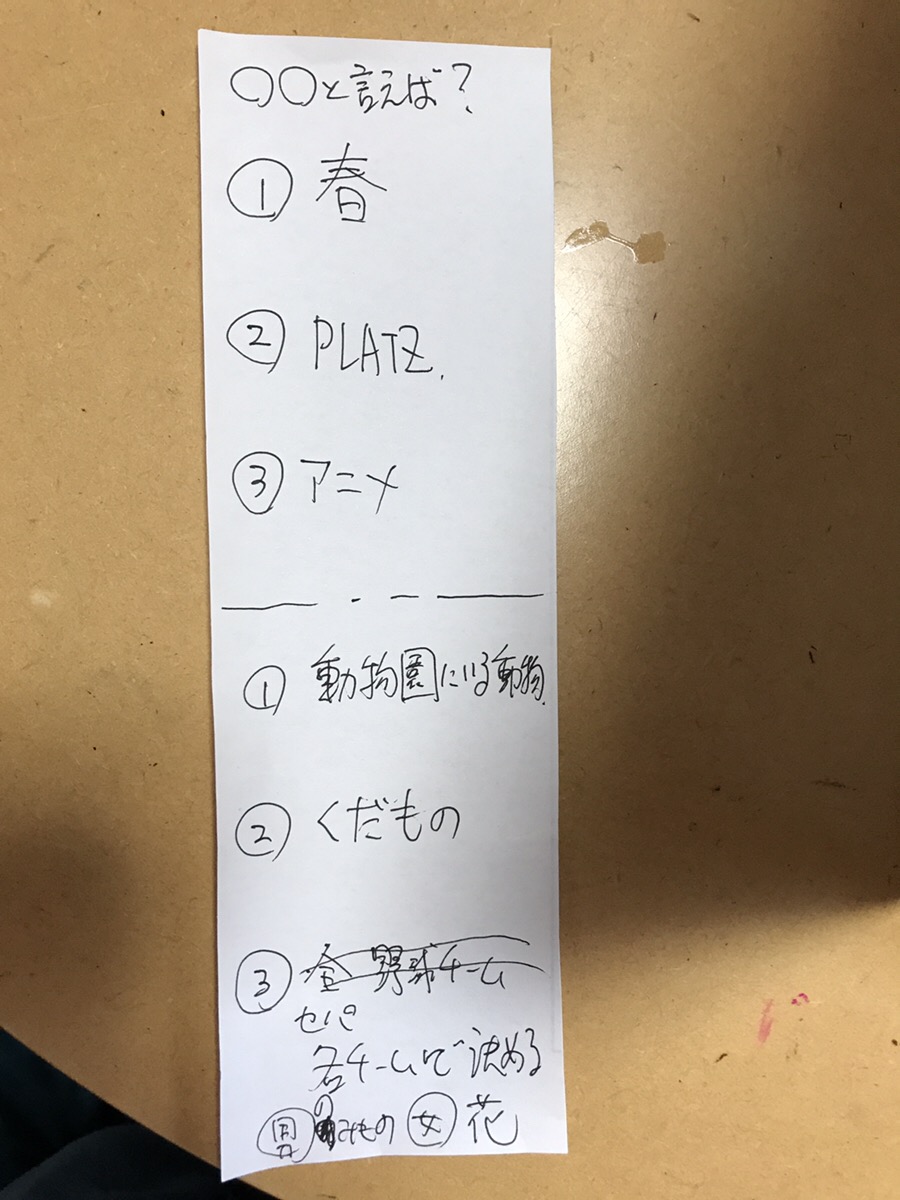 〇〇と言えば?
① 春
② PLATZ.
③ アニメ
① 動物園にいる動物.
② くだもの
③ 全 野球チーム
セパ
各チームで決める
男 のみもの 女 花